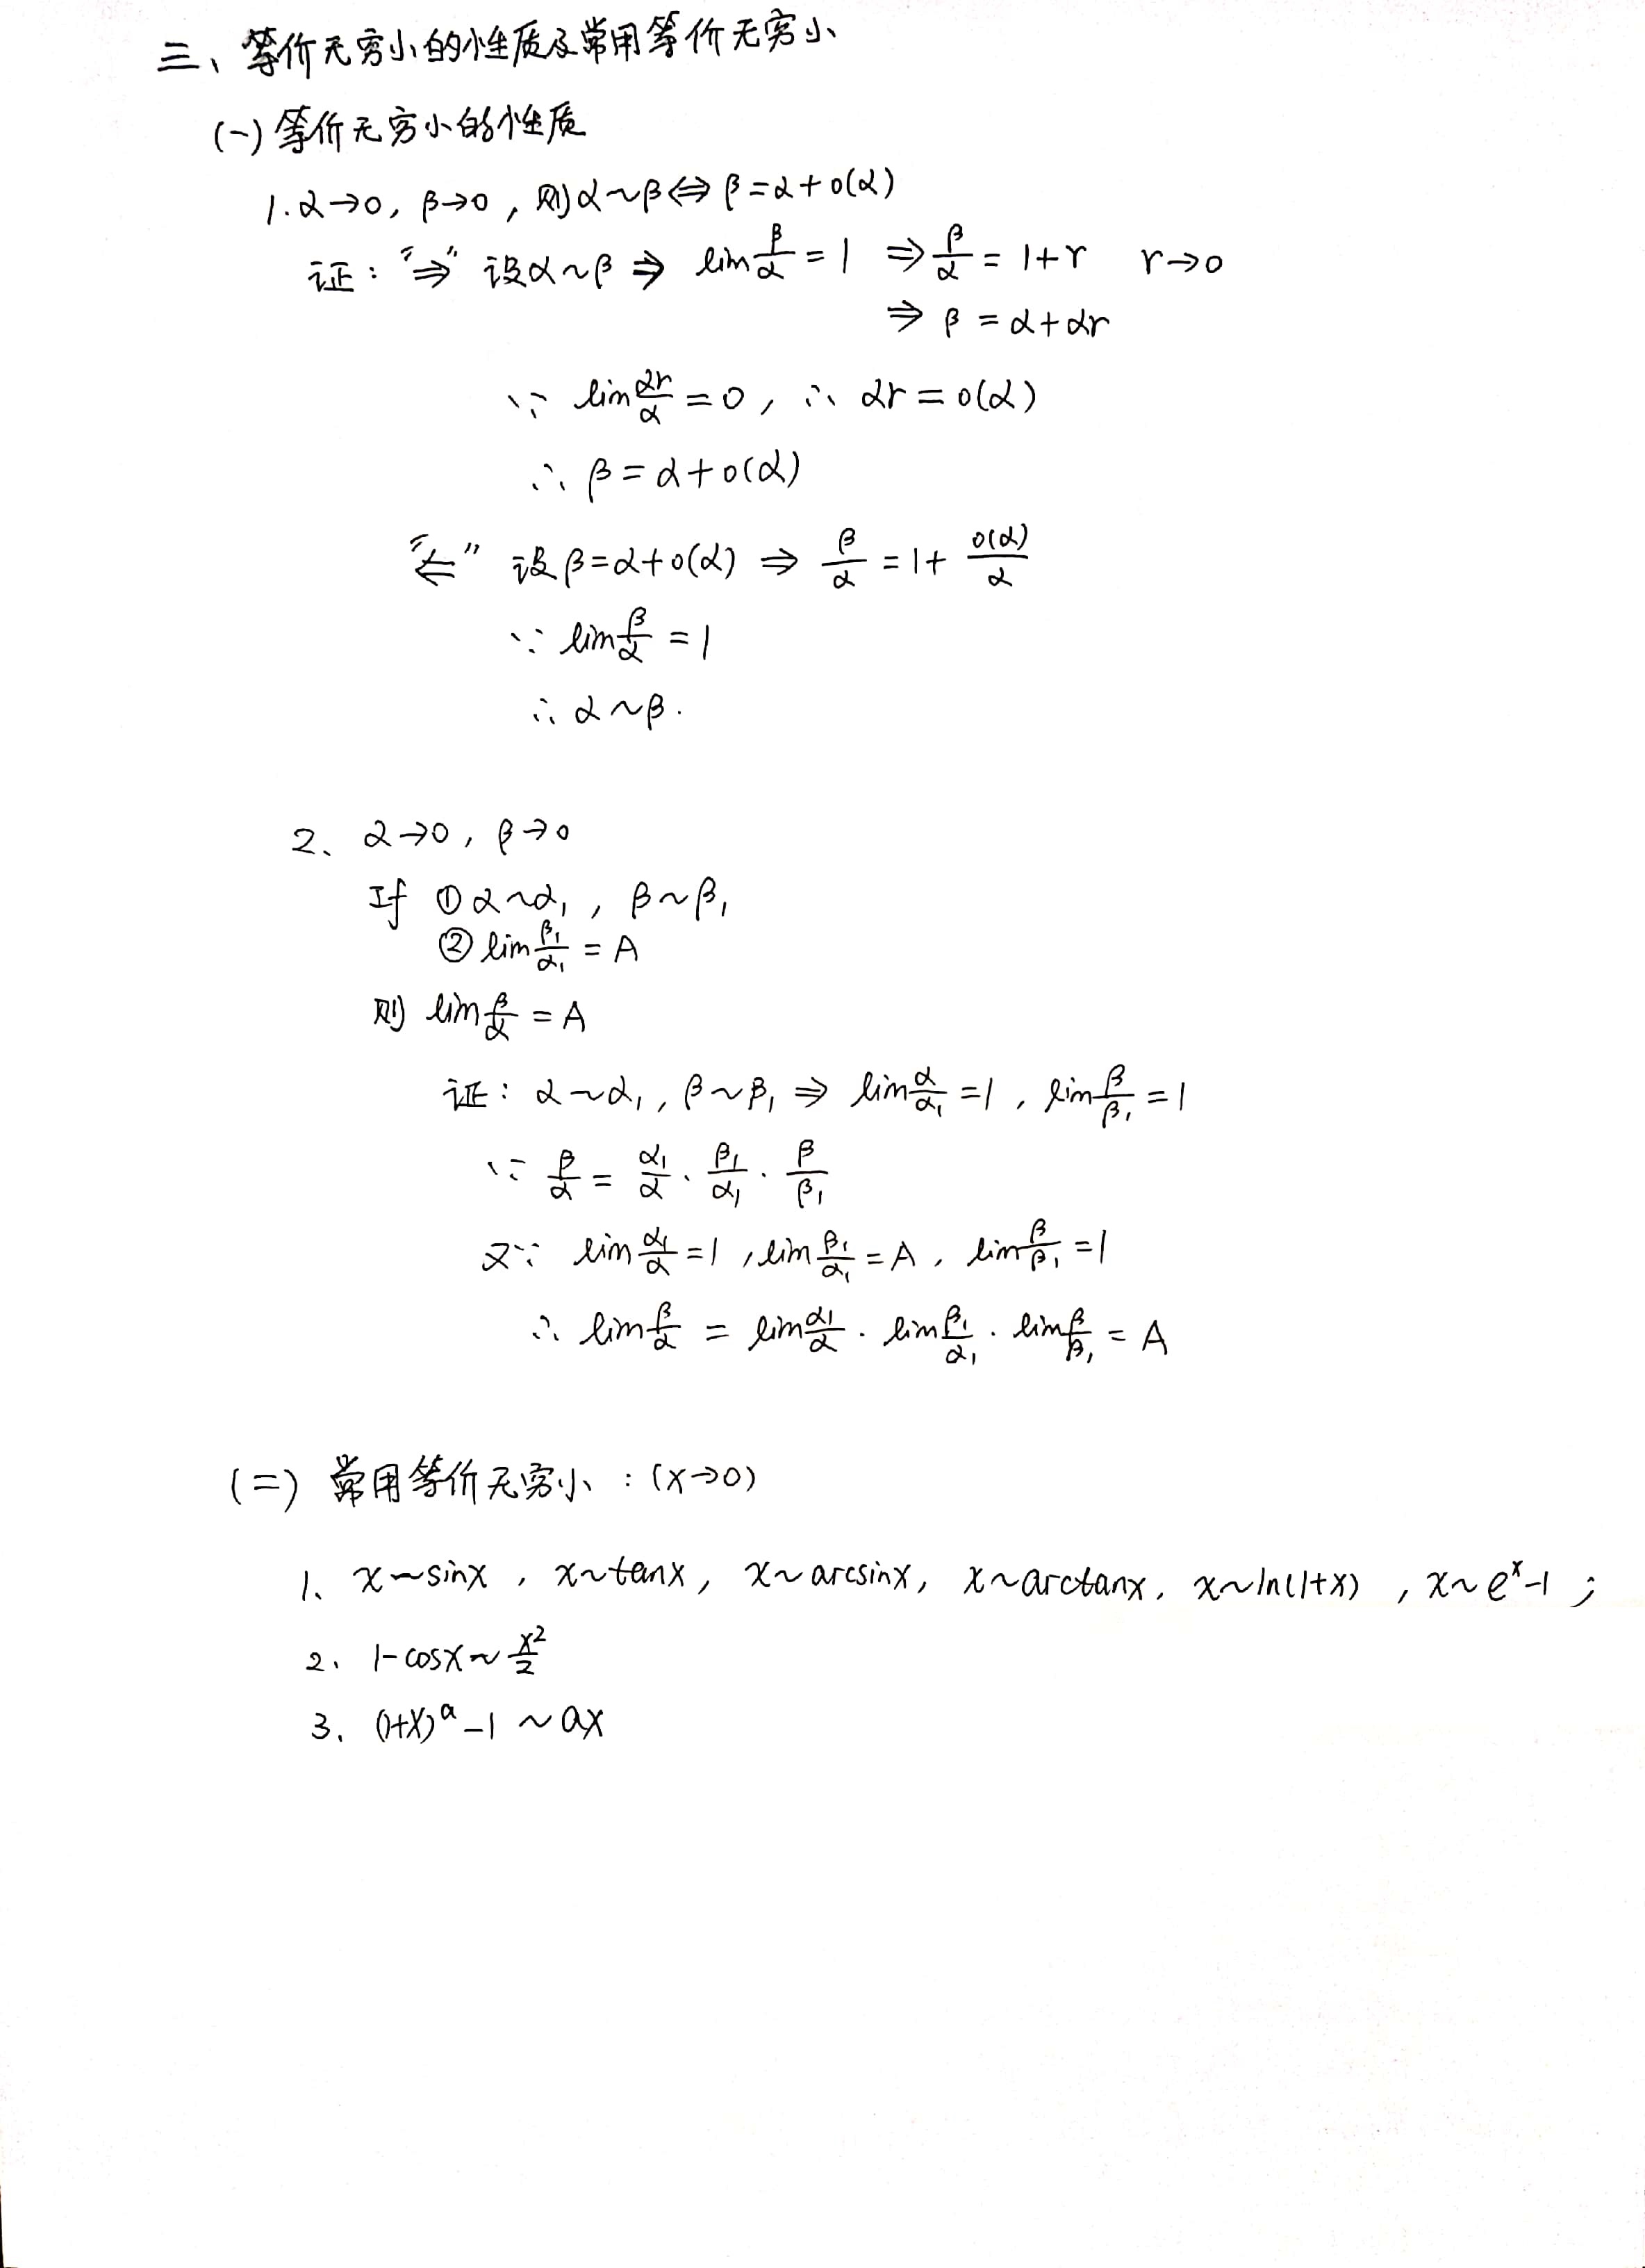 三、等价无穷小的性质及常用等价无穷小
(一) 等价无穷小的性质
1. α→0, β→0, 则α~β⇔β=α+o(α)
证: "⇒" 设α~β ⇒ lim β/α = 1 ⇒ β/α = 1+r r→0
⇒ β = α+αr
∵ lim αr/α = 0, ∴ αr = o(α)
∴ β = α+o(α)
"⇐" 设β=α+o(α) ⇒ β/α = 1+ o(α)/α
∵ lim β/α = 1
∴ α~β.
2、 α→0, β→0
If ① α~α₁, β~β₁
② lim β₁/α₁ = A
则 lim β/α = A
证: α~α₁, β~β₁ ⇒ lim α/α₁ = 1, lim β/β₁ = 1
∵ β/α = α₁/α · β₁/α₁ · β/β₁
又∵ lim α₁/α = 1, lim β₁/α₁ = A, lim β/β₁ = 1
∴ lim β/α = lim α₁/α · lim β₁/α₁ · lim β/β₁ = A
(二) 常用等价无穷小: (x→0)
1、 x~sinx, x~tanx, x~arcsinx, x~arctanx, x~ln(1+x), x~eˣ-1;
2、 1-cosx~x²/2
3、 (1+x)ᵃ-1~ax